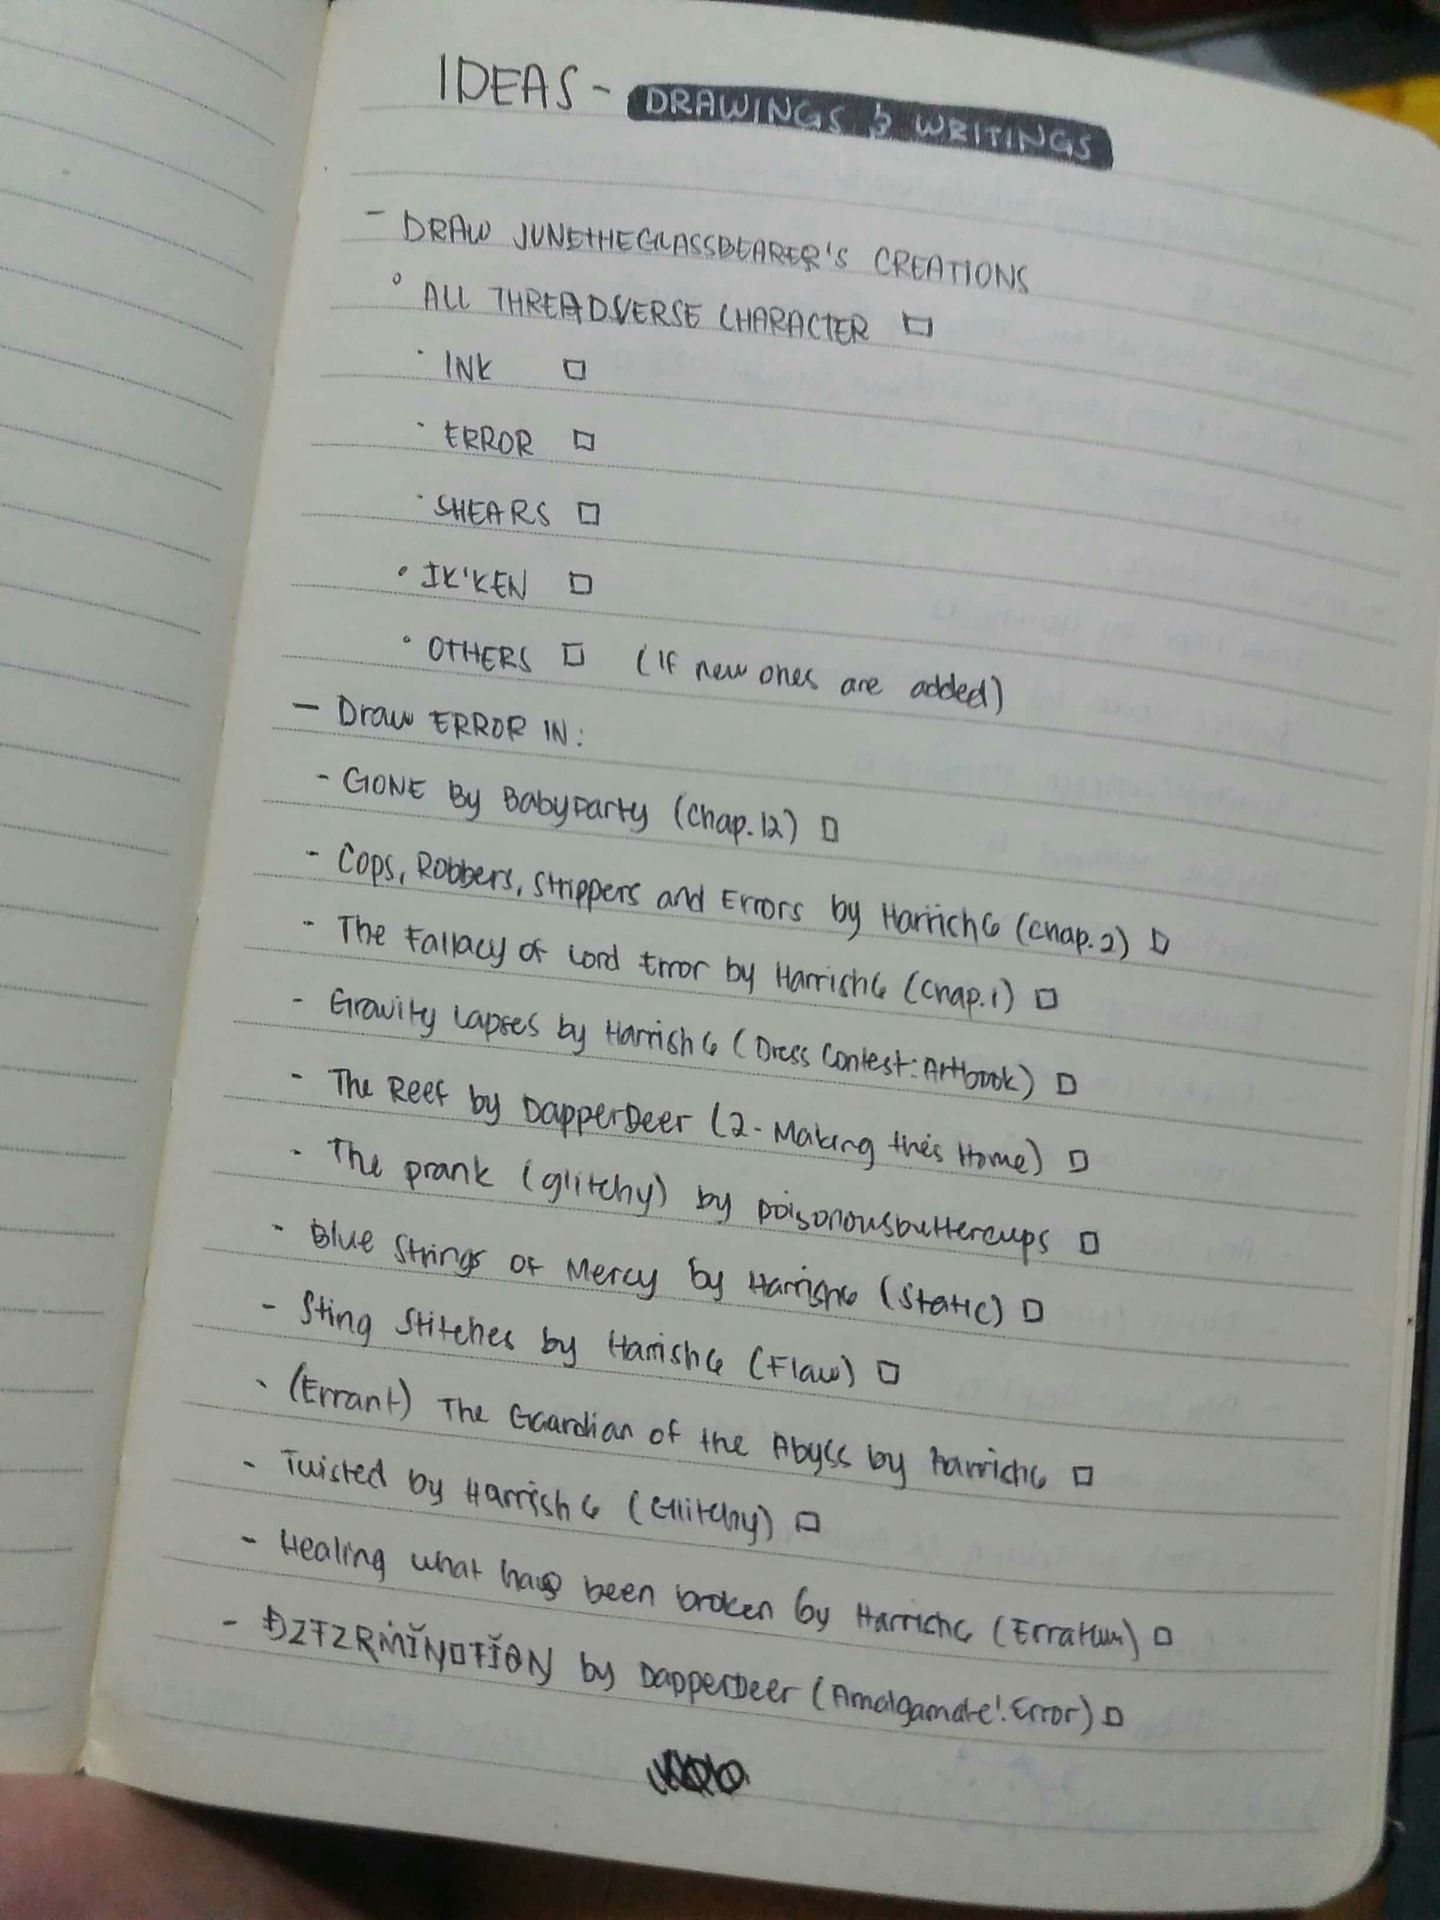 IDEAS - DRAWINGS & WRITINGS
- DRAW JUNETHEGLASSBEARER'S CREATIONS
° ALL THREADVERSE CHARACTER □
· INK □
· ERROR □
· SHEARS □
• IK'KEN □
• OTHERS □ (If new ones are added)
- Draw ERROR IN:
- GONE By BabyParty (Chap.12) □
- Cops, Robbers, Strippers and Errors by Harrish6 (Chap.2) □
- The Fallacy of Lord Error by Harrish6 (Chap.1) □
- Gravity Lapses by Harrish6 (Dress Contest: Artbook) □
- The Reef by DapperDeer (2- Making this Home) □
- The prank (glitchy) by poisonousbuttercups □
- Blue Strings of Mercy by Harrish6 (Static) □
- Sting Stitches by Harrish6 (Flaw) □
- (Errant) The Guardian of the Abyss by Harrish6 □
- Twisted by Harrish6 (Glitchy) □
- Healing what has been broken by Harrish6 (Erratum) □
- ĐZŦZRṀǏNOŦǏθN by DapperDeer (Amalgamate!Error) □